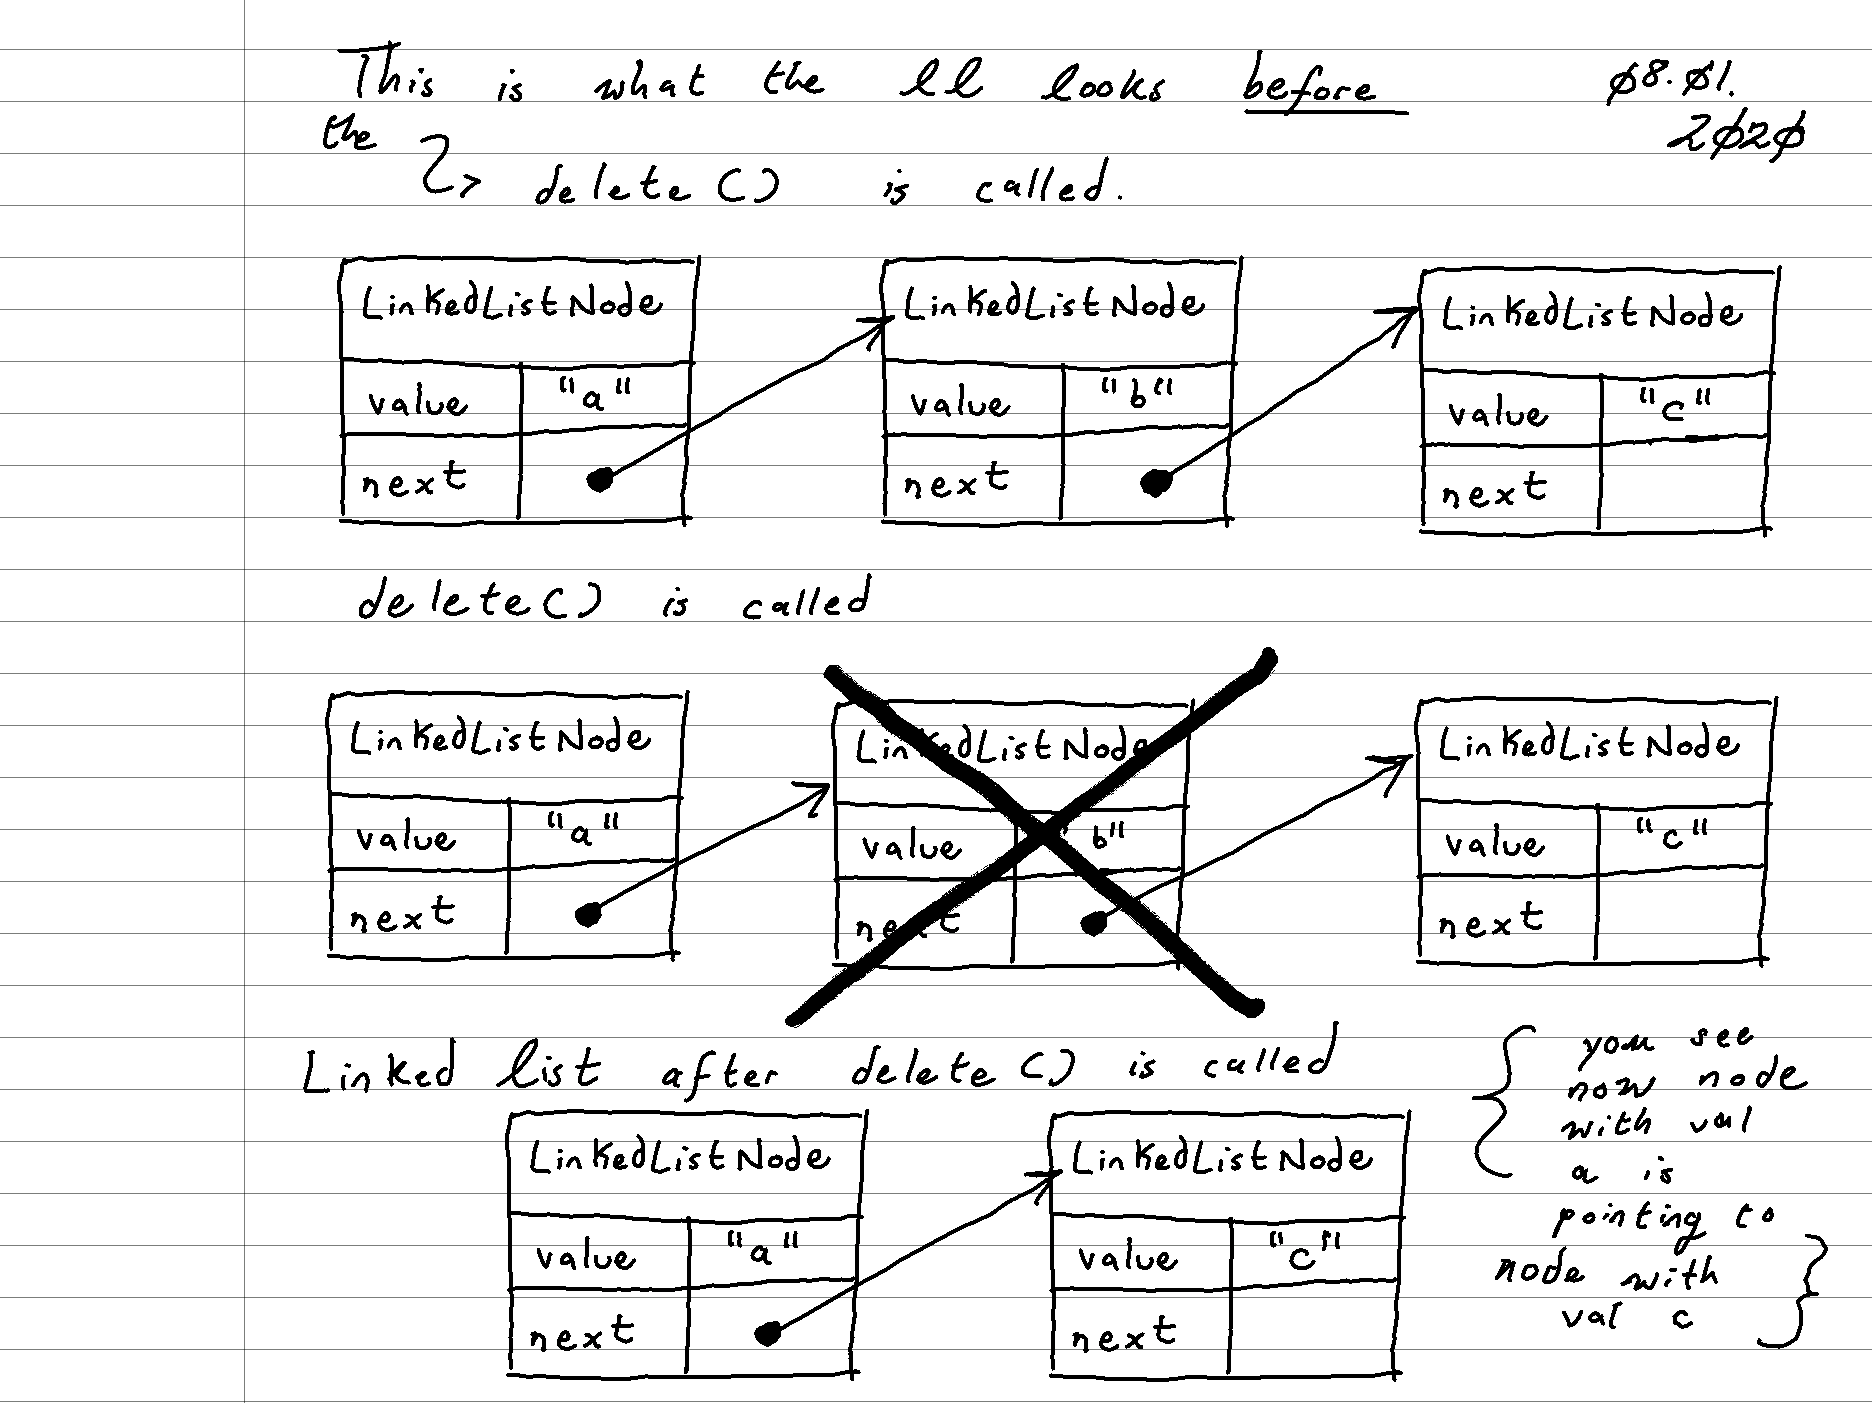 This is what the ll looks before
ø8.ø1.
2ø2ø
the
delete() is called.
LinkedListNode
value "a"
next
LinkedListNode
value "b"
next
LinkedListNode
value "c"
next
delete() is called
LinkedListNode
value "a"
next
LinkedListNode
value "b"
next
LinkedListNode
value "c"
next
Linked list after delete() is called
LinkedListNode
value "a"
next
LinkedListNode
value "c"
next
you see
now node
with val
a is
pointing to
node with
val c